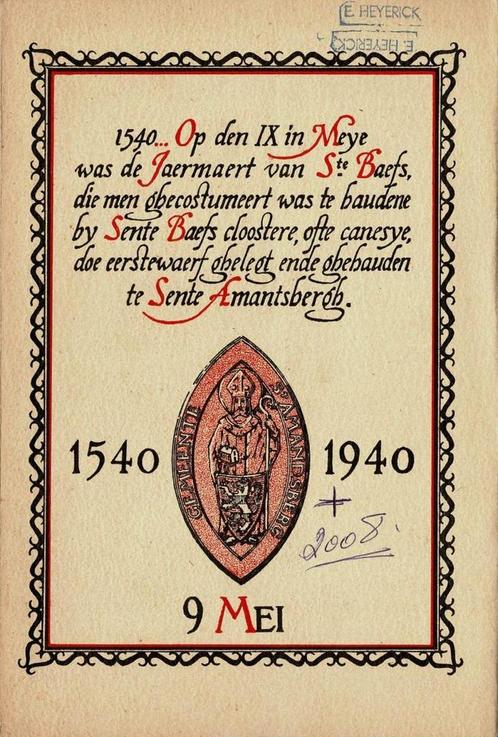 E. HEYERICK
E. HEYERICK
1540... Op den IX in Meye
was de Jaermaert van Ste. Baefs,
die men ghecostumeert was te haudene
by Sente Baefs cloostere, ofte canesye,
doe eerstewaerf ghelegt ende ghehauden
te Sente Amantsbergh.
GEMEENTE ST AMANDSBERG
1540 1940
+
2008.
9 MEI